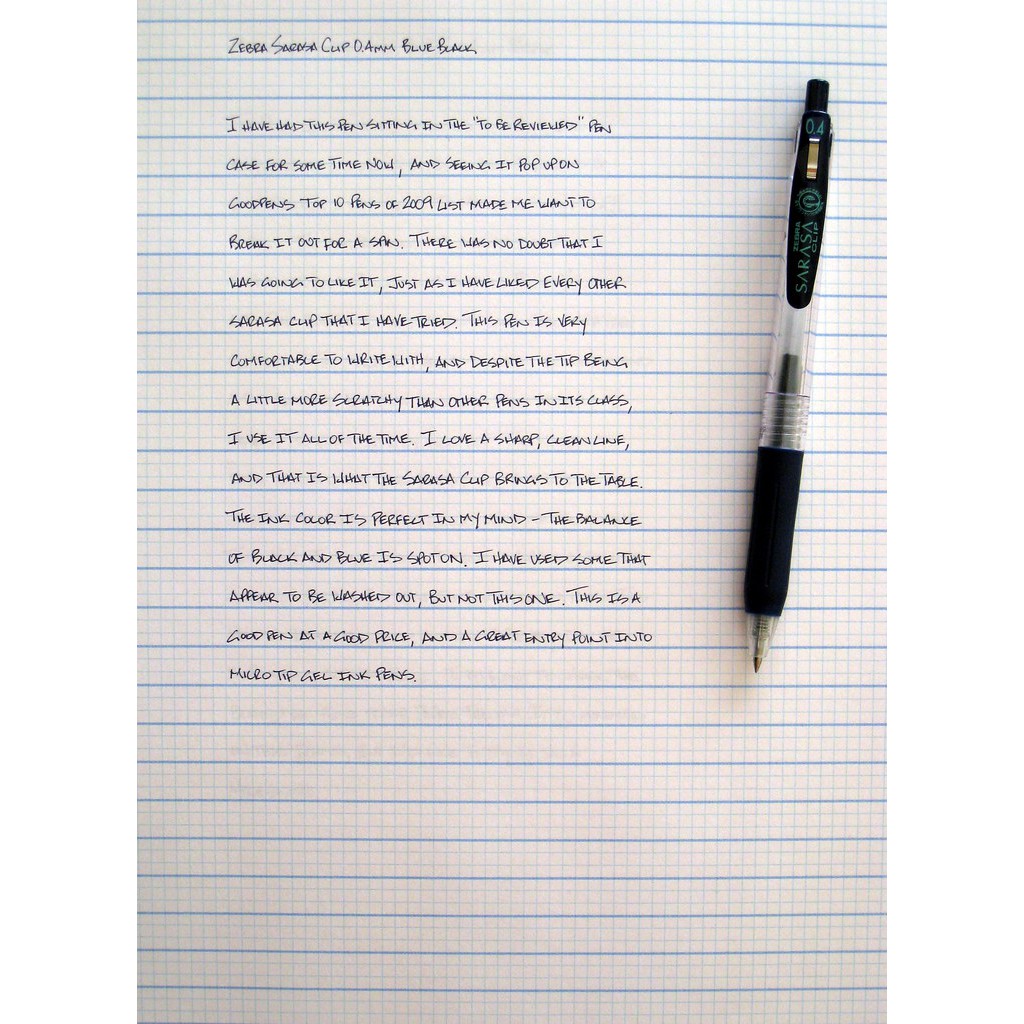 Zebra Sarasa Clip 0.4mm Blue Black
I have had this pen sitting in the "to be reviewed" pen
case for some time now, and seeing it pop up on
Goodpens Top 10 Pens of 2009 list made me want to
break it out for a spin. There was no doubt that I
was going to like it, just as I have liked every other
Sarasa Clip that I have tried. This pen is very
comfortable to write with, and despite the tip being
a little more scratchy than other pens in its class,
I use it all of the time. I love a sharp, clean line,
and that is what the Sarasa Clip brings to the table.
The ink color is perfect in my mind – the balance
of black and blue is spot on. I have used some that
appear to be washed out, but not this one. This is a
good pen at a good price, and a great entry point into
micro tip gel ink pens.
0.4
ZEBRA
SARASA
CLIP